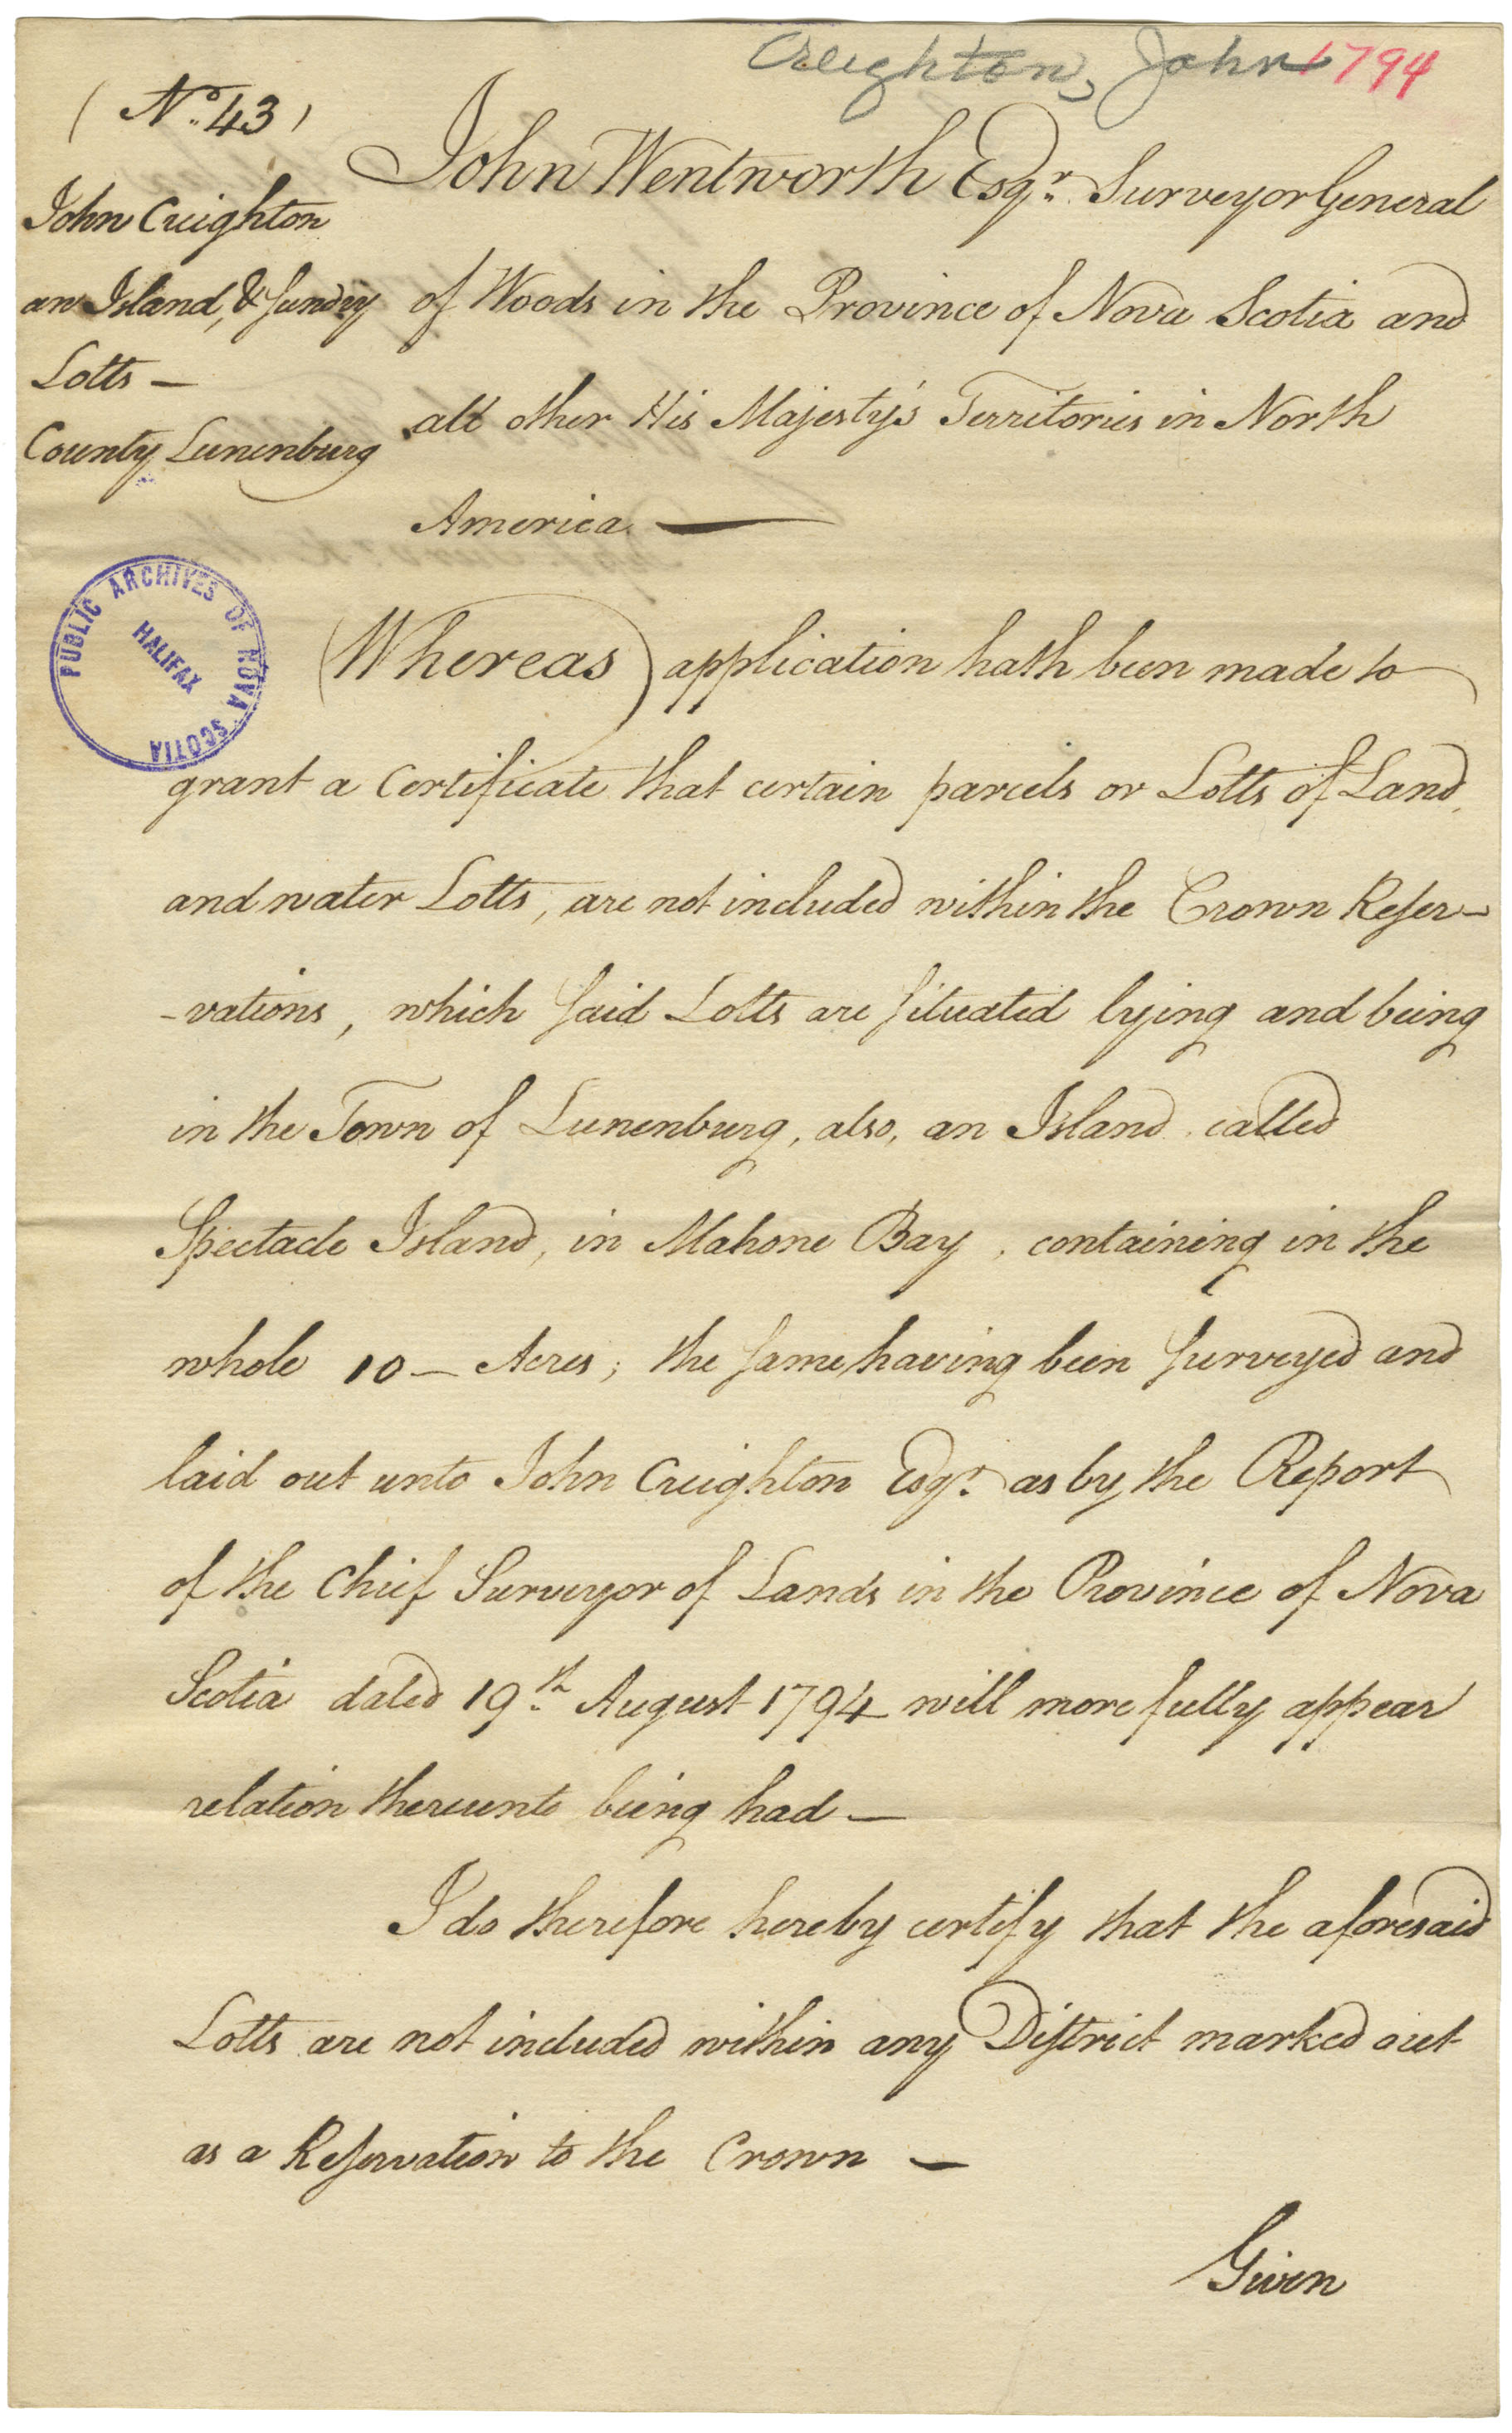 Creighton, John 1794
(No. 43)
John Creighton
an Island, & sundry
Lotts —
County Lunenburg
John Wentworth Esqr. Surveyor General
of Woods in the Province of Nova Scotia and
all other His Majesty's Territories in North
America. —
PUBLIC ARCHIVES OF NOVA SCOTIA
HALIFAX
(Whereas) application hath been made to
grant a Certificate that certain parcels or Lotts of Land,
and water Lotts, are not included within the Crown Reser-
-vations, which said Lotts are situated lying and being
in the Town of Lunenburg, also, an Island called
Spectacle Island, in Mahone Bay, containing in the
whole 10 — Acres; the same having been surveyed and
laid out unto John Creighton Esqr. as by the Report
of the Chief Surveyor of Lands in the Province of Nova
Scotia dated 19th. August 1794 will more fully appear
relation thereunto being had —
I do therefore hereby certify that the aforesaid
Lotts are not included within any District marked out
as a Reservation to the Crown —
Given